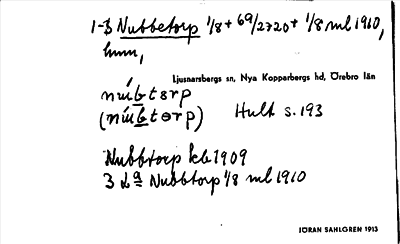 1-3 Nubbetorp 1/8 + 69/2720 + 1/8 ml 1910,
hmn,
Ljusnarsbergs sn, Nya Kopparbergs hd, Örebro län
núbtɵrp
(núbtɵrp) Hult s. 193
Nubbtorp kb 1909
3 da Nubbtorp 1/8 ml 1910
JÖRAN SAHLGREN 1913